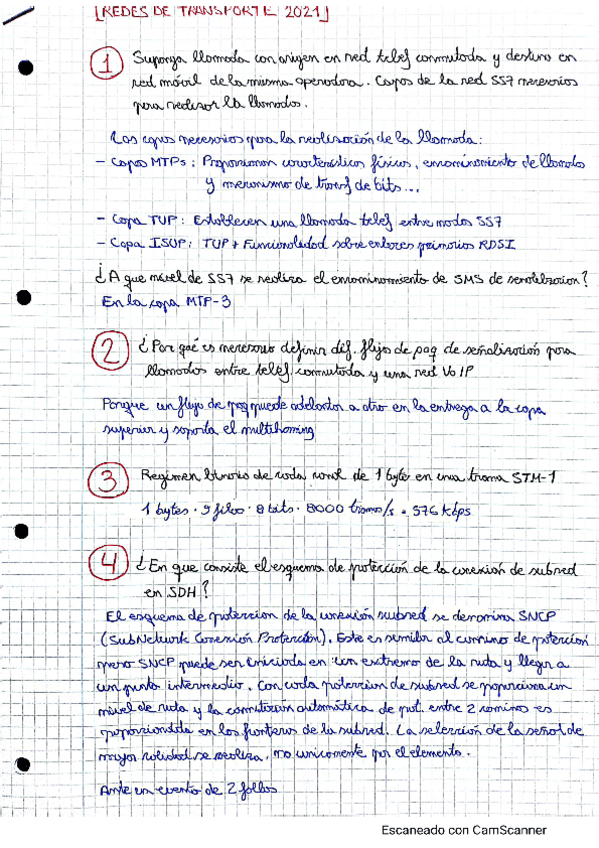 [REDES DE TRANSPORTE 2021]
1 Suponga llamada con origen en red telef conmutada y destino en
red móvil de la misma operadora. Capas de la red SS7 necesarias
para realizar la llamada.
Las capas necesarias para la realización de la llamada:
- Capas MTPs: Proporcionan características físicas, encaminamiento de llamada
y mecanismo de transf de bits...
- Capa TUP: Establecen una llamada telef entre nodos SS7
- Capa ISUP: TUP + Funcionalidad sobre enlaces primarios RDSI
¿A que nivel de SS7 se realiza el encaminamiento de SMS de señalización?
En la capa MTP-3
2 ¿Por qué es necesario definir dif. flujos de paq de señalización para
llamadas entre telef conmutada y una red VoIP
Porque un flujo de paq puede adelantar a otro en la entrega a la capa
superior y soporta el multihoming
3 Regimen binario de cada canal de 1 byte en una trama STM-1
1 bytes · 9 filas · 8 bits · 8000 tramas/s = 576 kbps
4 ¿En que consiste el esquema de protección de la conexión de subred
en SDH?
El esquema de proteccion de la conexión subred se denomina SNCP
(SubNetwork Conexión Protección). Este es similar al camino de proteccion
pero SNCP puede ser iniciada en un extremo de la ruta y llegar a
un punto intermedio. Con cada proteccion de subred se proporciona un
nivel de ruta y la conmutación automática de prot. entre 2 caminos es
proporcionada en las fronteras de la subred. La selección de la señal de
mayor calidad se realiza, no unicamente por el elemento.
Ante un evento de 2 fallos
Escaneado con CamScanner